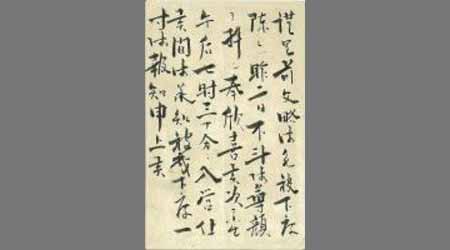 謹呈前文略御免被下度
陳ハ昨二日不斗御尊顔
ヲ拝シ奉欣喜候次ニ生
午后七時三十分入営仕
候間御承知被成下度一
寸御報知申上候